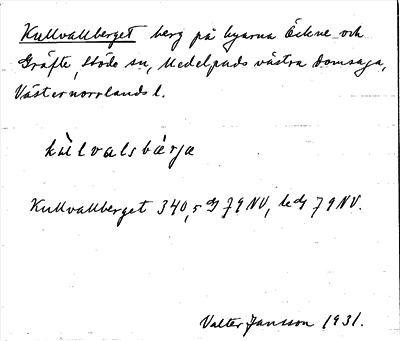 Kullvallberget berg på byarna Öckne och
Gräfte, Stöde sn, Medelpads västra domsaga,
Västernorrlands l.
kùlvalsbærja
Kullvallberget 340,5 79NV, 79NV.
Valter Jansson 1931.